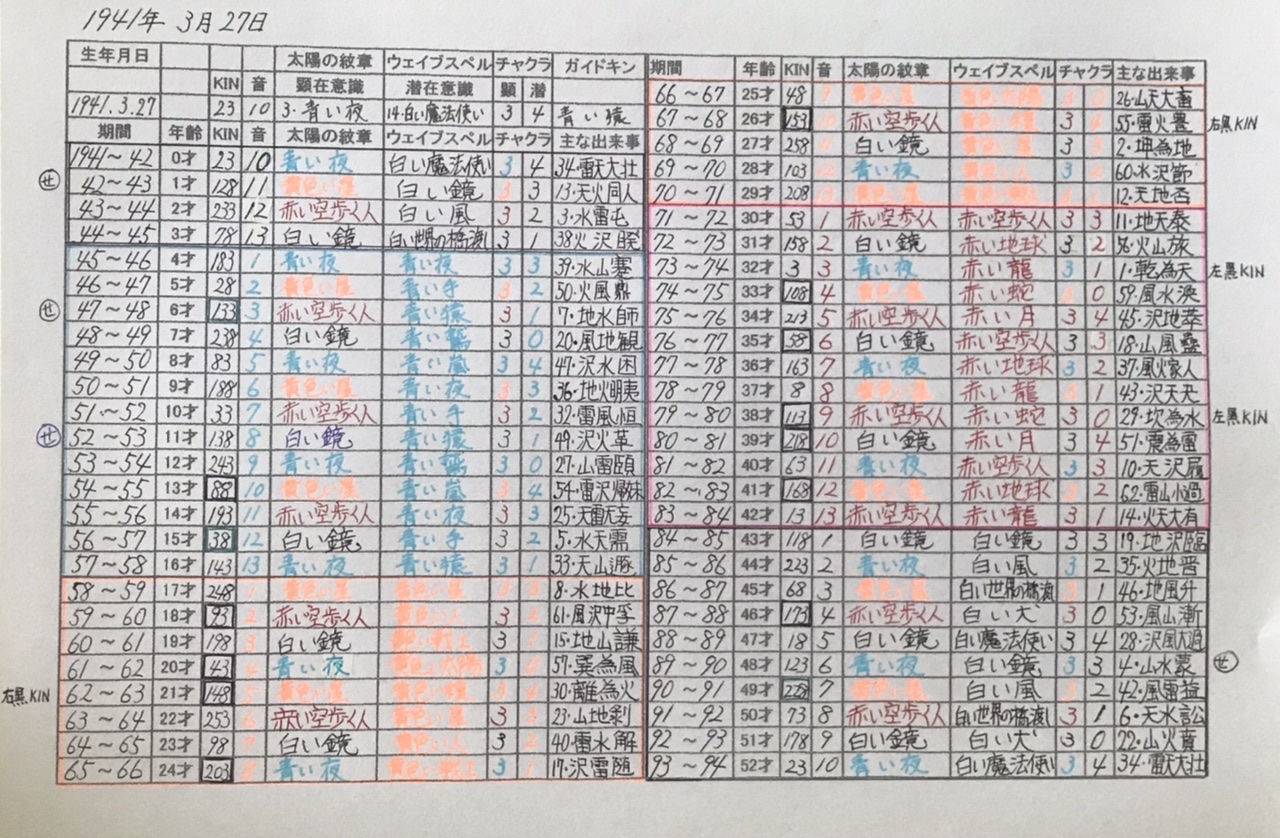 1941年 3月27日
生年月日 太陽の紋章 ウェイブスペル チャクラ ガイドキン
KIN 音 顕在意識 潜在意識 顕 潜
1941.3.27 23 10 3・青い夜 14・白い魔法使い 3 4 青い猿
期間 年齢 KIN 音 太陽の紋章 ウェイブスペル チャクラ 主な出来事
1941～42 0才 23 10 青い夜 白い魔法使い 3 4 34・雷天大壮
㋝ 42～43 1才 128 11 黄色い星 白い鏡 3 3 13・天火同人
43～44 2才 233 12 赤い空歩く人 白い風 3 2 3・水雷屯
44～45 3才 78 13 白い鏡 白い世界の橋渡し 3 1 38火沢睽
45～46 4才 183 1 青い夜 青い夜 3 3 39・水山蹇
46～47 5才 28 2 黄色い星 青い手 3 2 50・火風鼎
㋝ 47～48 6才 133 3 赤い空歩く人 青い猿 3 1 7・地水師
48～49 7才 238 4 白い鏡 青い鷲 3 0 20・風地観
49～50 8才 83 5 青い夜 青い嵐 3 4 47・沢水困
50～51 9才 188 6 黄色い星 青い夜 3 3 36・地火明夷
51～52 10才 33 7 赤い空歩く人 青い手 3 2 32・雷風恒
㋝ 52～53 11才 138 8 白い鏡 青い猿 3 1 49・沢火革
53～54 12才 243 9 青い夜 青い鷲 3 0 27・山雷頤
54～55 13才 88 10 黄色い星 青い嵐 3 4 54・雷沢帰妹
55～56 14才 193 11 赤い空歩く人 青い夜 3 3 25・天雷无妄
56～57 15才 38 12 白い鏡 青い手 3 2 5・水天需
57～58 16才 143 13 青い夜 青い猿 3 1 33・天山遯
58～59 17才 248 1 黄色い星 黄色い星 8・水地比
59～60 18才 93 2 赤い空歩く人 黄色い人 3 2 61・風沢中孚
60～61 19才 198 3 白い鏡 黄色い戦士 3 1 15・地山謙
61～62 20才 43 4 青い夜 黄色い太陽 3 0 57・巽為風
右黒KIN 62～63 21才 148 5 黄色い星 黄色い種 3 4 30・離為火
63～64 22才 253 6 赤い空歩く人 黄色い星 3 3 23・山地剥
64～65 23才 98 7 白い鏡 黄色い人 3 2 40・雷水解
65～66 24才 203 8 青い夜 黄色い戦士 3 1 17・沢雷随
期間 年齢 KIN 音 太陽の紋章 ウェイブスペル チャクラ 主な出来事
66～67 25才 48 9 黄色い星 黄色い太陽 3 0 26・山天大畜
67～68 26才 153 10 赤い空歩く人 黄色い種 3 4 55・雷火豊 右黒KIN
68～69 27才 258 白い鏡 黄色い星 3 3 2・坤為地
69～70 28才 103 12 青い夜 黄色い人 3 2 60・水沢節
70～71 29才 208 黄色い星 黄色い戦士 12・天地否
71～72 30才 53 1 赤い空歩く人 赤い空歩く人 3 3 11・地天泰
72～73 31才 158 2 白い鏡 赤い地球 3 2 56・火山旅
73～74 32才 3 3 青い夜 赤い龍 3 1 1・乾為天 左黒KIN
74～75 33才 108 4 黄色い星 赤い蛇 3 0 59・風水渙
75～76 34才 213 5 赤い空歩く人 赤い月 3 4 45・沢地萃
76～77 35才 58 6 白い鏡 赤い空歩く人 3 3 18・山風蠱
77～78 36才 163 7 青い夜 赤い地球 3 2 37・風火家人
78～79 37才 8 8 黄色い星 赤い龍 3 1 43・沢天夬
79～80 38才 113 9 赤い空歩く人 赤い蛇 3 0 29・坎為水 左黒KIN
80～81 39才 218 10 白い鏡 赤い月 3 4 51・震為雷
81～82 40才 63 11 青い夜 赤い空歩く人 3 3 10・天沢履
82～83 41才 168 12 黄色い星 赤い地球 3 2 62・雷山小過
83～84 42才 13 13 赤い空歩く人 赤い龍 3 1 14・火天大有
84～85 43才 118 1 白い鏡 白い鏡 3 3 19・地沢臨
85～86 44才 223 2 青い夜 白い風 3 2 35・火地晋
86～87 45才 68 3 黄色い星 白い世界の橋渡し 3 1 46・地風升
87～88 46才 173 4 赤い空歩く人 白い犬 3 0 53・風山漸
88～89 47才 18 5 白い鏡 白い魔法使い 3 4 28・沢風大過
89～90 48才 123 6 青い夜 白い鏡 3 3 4・山水蒙 ㋝
90～91 49才 228 7 黄色い星 白い風 3 2 42・風雷益
91～92 50才 73 8 赤い空歩く人 白い世界の橋渡し 3 1 6・天水訟
92～93 51才 178 9 白い鏡 白い犬 3 0 22・山火賁
93～94 52才 23 10 青い夜 白い魔法使い 3 4 34・雷天大壮